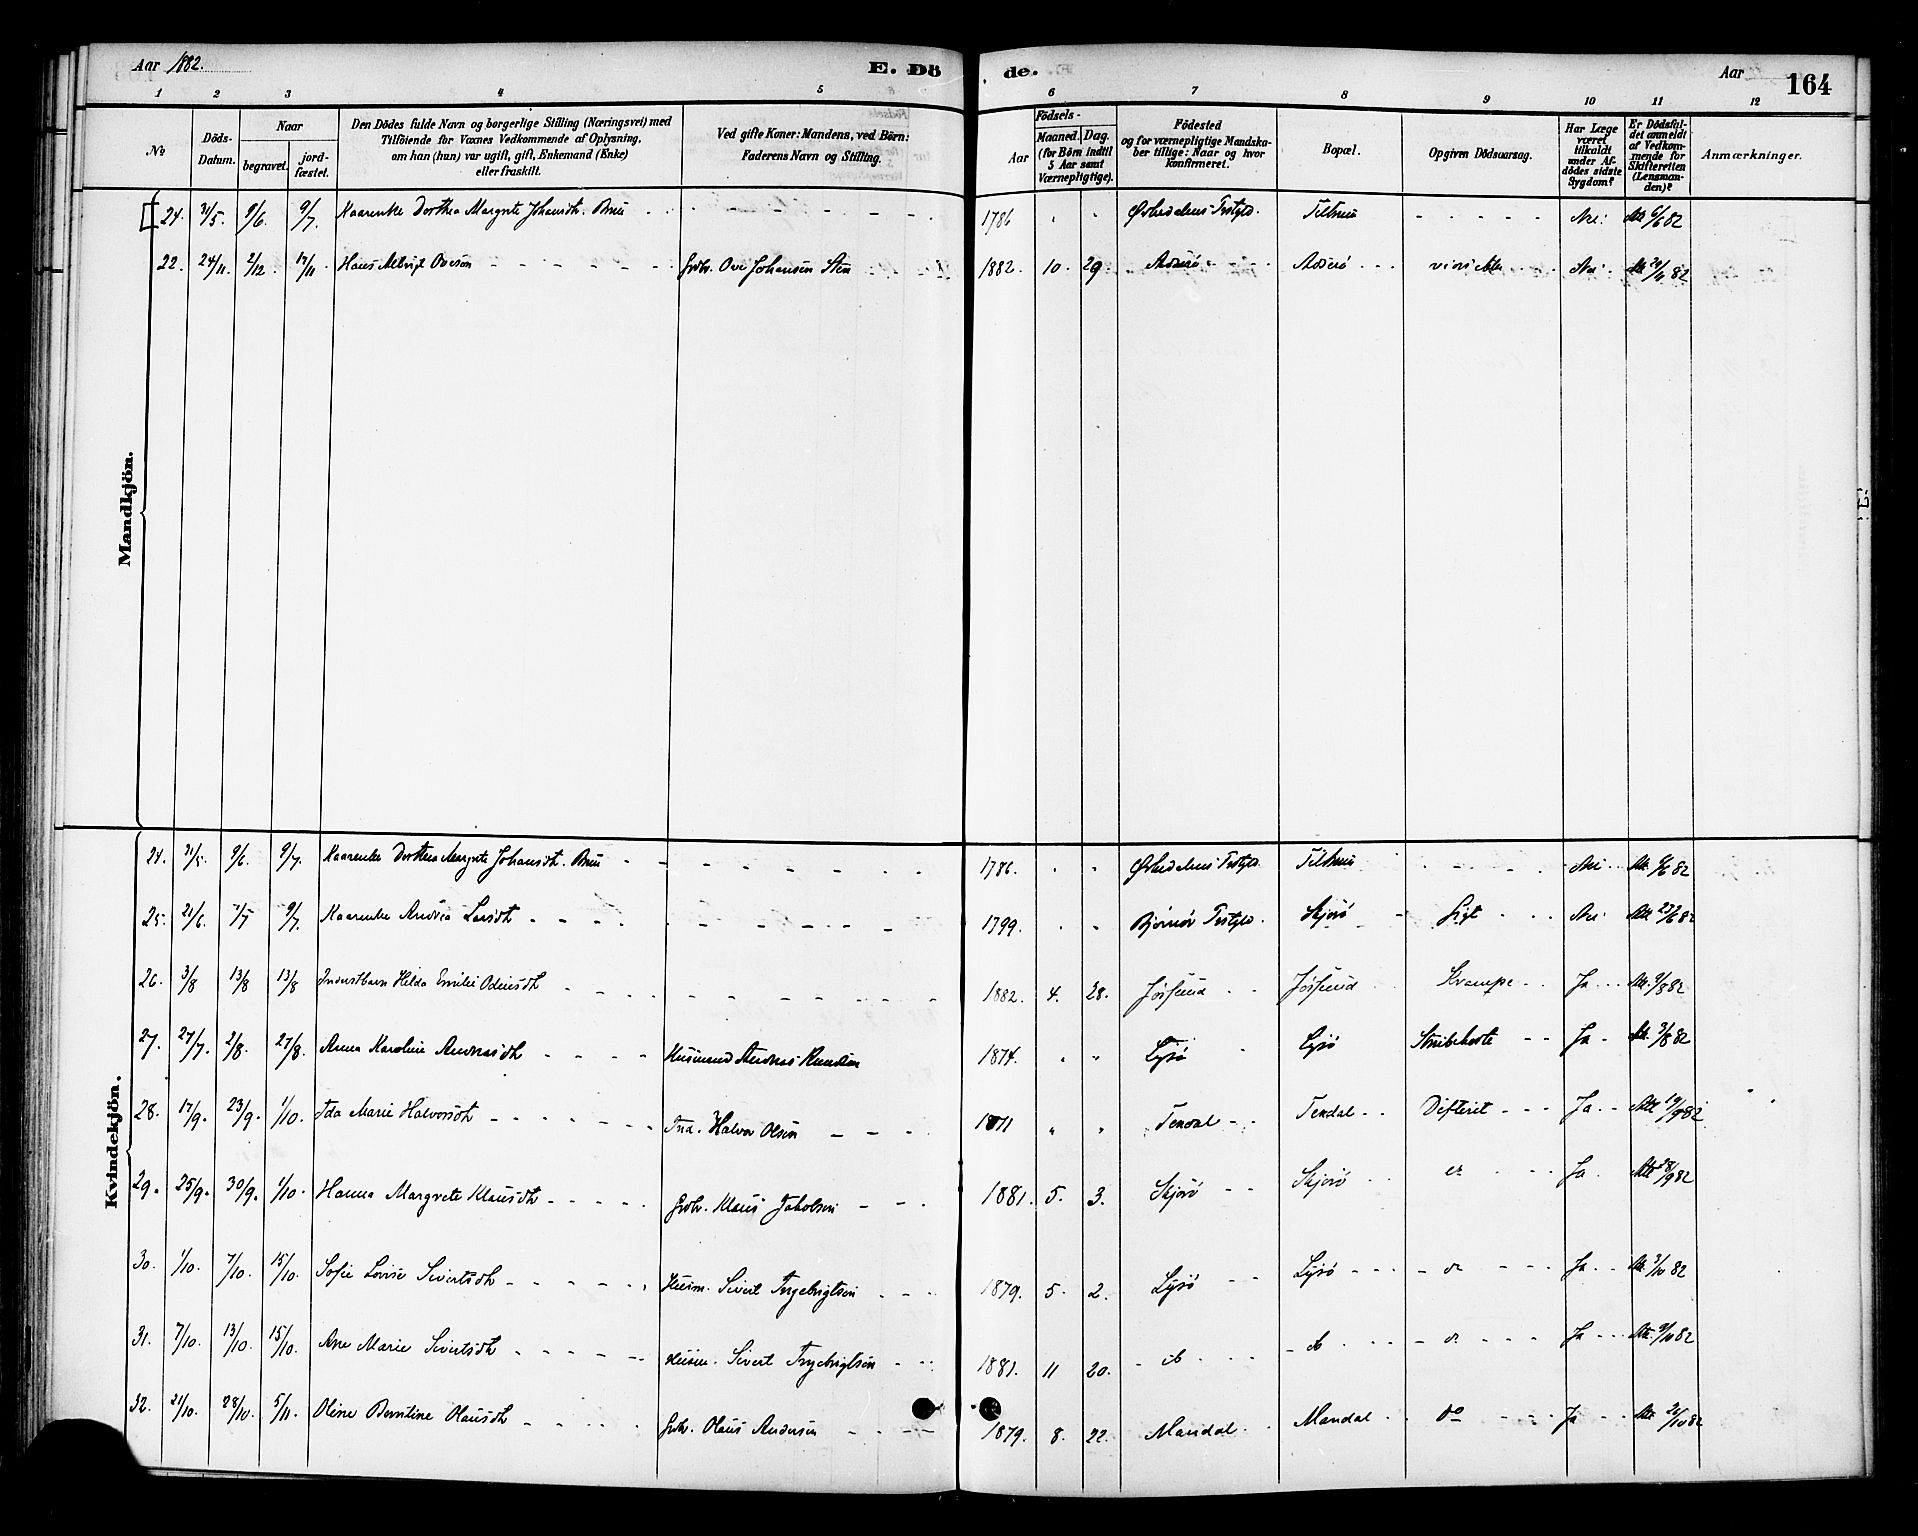 Aar 1882.
E. Dö
de.
Aar
164
1 2 3 4 5 6 7 8 9 10 11 12
No
Döds-Datum.
Naar
begravet.
jord-fæstet.
Den Dödes fulde Navn og borgerlige Stilling (Næringsvei) med
Tilföiende for Voxnes Vedkommende af Oplysning,
om han (hun) var ugift, gift, Enkemand (Enke)
eller fraskilt.
Ved gifte Koner: Mandens, ved Börn:
Faderens Navn og Stilling.
Födsels-
Aar
Maaned. Dag.
(for Börn indtil
5 Aar samt
Værnepligtige).
Födested
og for værnepligtige Mandska-
ber tillige: Naar og hvor
konfirmeret.
Bopæl.
Opgiven Dödsaarsag.
Har Læge
været
tilkaldt
under Af-
dödes sidste
Sygdom?
Er Dödsfal-
det anmeldt
af Vedkom-
mende for
Skifteretten
(Lensman-
den)?
Anmærkninger.
Mandkjön.
24. 31/5. 9/6. 9/7. Kaarenke Dorthea Margrete Johansdt. 1786 Nei: Att 6/6 82
22. 24/11. 2/12. Hans Oveson Ove Johansen 1882. 10. 29. Nei Att 82
Kvindekjön.
24. 31/5. 9/6. 9/7. Kaarenke Dorthea Margrete Johansdt. 1786. Nei Att. 6/6 82
25. 21/6. 9/7. Kaarenke Andrea Larsdt 1799. Bjørnør Skjorö Gigt Nei. Att 23/6 82
26. 3/8 13/8 13/8 Hilda Emilie Odinsdt 1882. 4. 28. Jössund Jössund Krampe Ja Att. 9/8 82
27. 27/7. 2/8. 27/8. Anna Karoline Andreasdt Husmand Andreas 1874. Lysö Lysö Strubehoste Ja Att. 3/8 82
28. 17/9. 23/9. 1/10. Ida Marie Halvorsdt Ind. Halvor Olsen 1871 Tendal Difterit Ja Att 19/9 82
29. 25/9. 30/9. 1/10. Hanna Margrete Klausdt Grdbr. Klaus Jakobsen 1881. 5. 3. Skjorö Skjorö Ja Att 28/9 82
30. 1/10. 7/10. 15/10. Sofie Lovise Sivertsdt Husm. Sivert Ingebrigtsen 1879. 5. 2. Lysö Lysö do Ja Att 3/10 82
31. 7/10. 13/10. 15/10. Ane Marie Sivertsdt Husm. Sivert Ingebrigtsen 1881. 11 20. do Ja Att 9/10 82
32. 21/10. 28/10. 5/11. Oline Berntine Olausdt Grdbr. Olaus Andersen 1879. 8. 22. Mandal Mandal do Ja Att 26/10 82